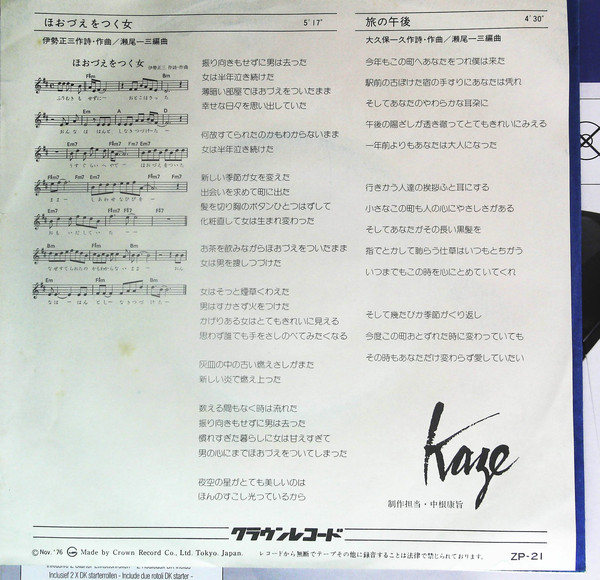 ほおづえをつく女 5'17"
伊勢正三作詩・作曲／瀬尾一三編曲
ほおづえをつく女 伊勢正三 作詩・作曲
振り向きもせずに男は去った
女は半年泣き続けた
薄暗い部屋でほおづえをついたまま
幸せな日々を思い出していた
何故すてられたのかもわからないまま
女は半年泣き続けた
新しい季節が女を変えた
出会いを求めて町に出た
髪を切り胸のボタンひとつはずして
化粧直して女は生まれ変わった
お茶を飲みながらほおづえをついたまま
女は男を捜しつづけた
女はそっと煙草くわえた
男はすかさず火をつけた
かげりある女はとてもきれいに見える
思わず誰でも手をさしのべてみたくなる
灰皿の中の古い燃えさしがまた
新しい炎で燃え上った
数える間もなく時は流れた
振り向きもせずに男は去った
慣れすぎた暮らしに女は甘えすぎて
男の心にまでほおづえをついてしまった
夜空の星がとても美しいのは
ほんのすこし光っているから
旅の午後 4'30"
大久保一久作詩・作曲／瀬尾一三編曲
今年もこの町へあなたをつれ僕は来た
駅前の古ぼけた宿の手すりにあなたは凭れ
そしてあなたのやわらかな耳朶に
午後の陽ざしが透き徹ってとてもきれいにみえる
一年前よりもあなたは大人になった
行きかう人達の挨拶ふと耳にする
小さなこの町も人の心にやさしさがある
そしてあなたがその長い黒髪を
指でとかして恥らう仕草はいつもとちがう
いつまでもこの時を心にとめていてくれ
そして幾たびか季節がくり返し
今度この町おとずれた時に変わっていても
その時もあなただけ変わらず愛していたい
Kaze
制作担当・中根康旨
クラウンレコード
Ⓒ Nov. '76 Made by Crown Record Co., Ltd. Tokyo. Japan. レコードから無断でテープその他に録音することは法律で禁じられております。 ZP-21
Inclusief 2 X DK starterrollen - Include due rotoli DK starter -